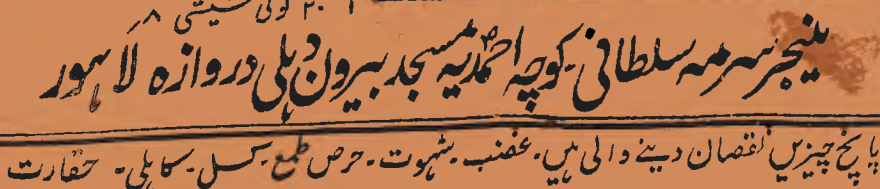 ۲۰ گولی شیشی ۸
مینیجر سرمہ سلطانی۔ کوچہ احمدیہ مسجد بیرون دہلی دروازہ لاہور
پانچ چیزیں نقصان دینے والی ہیں۔ غضب۔ شہوت۔ حرص طمع۔ کسل۔ کاہلی۔ حقارت